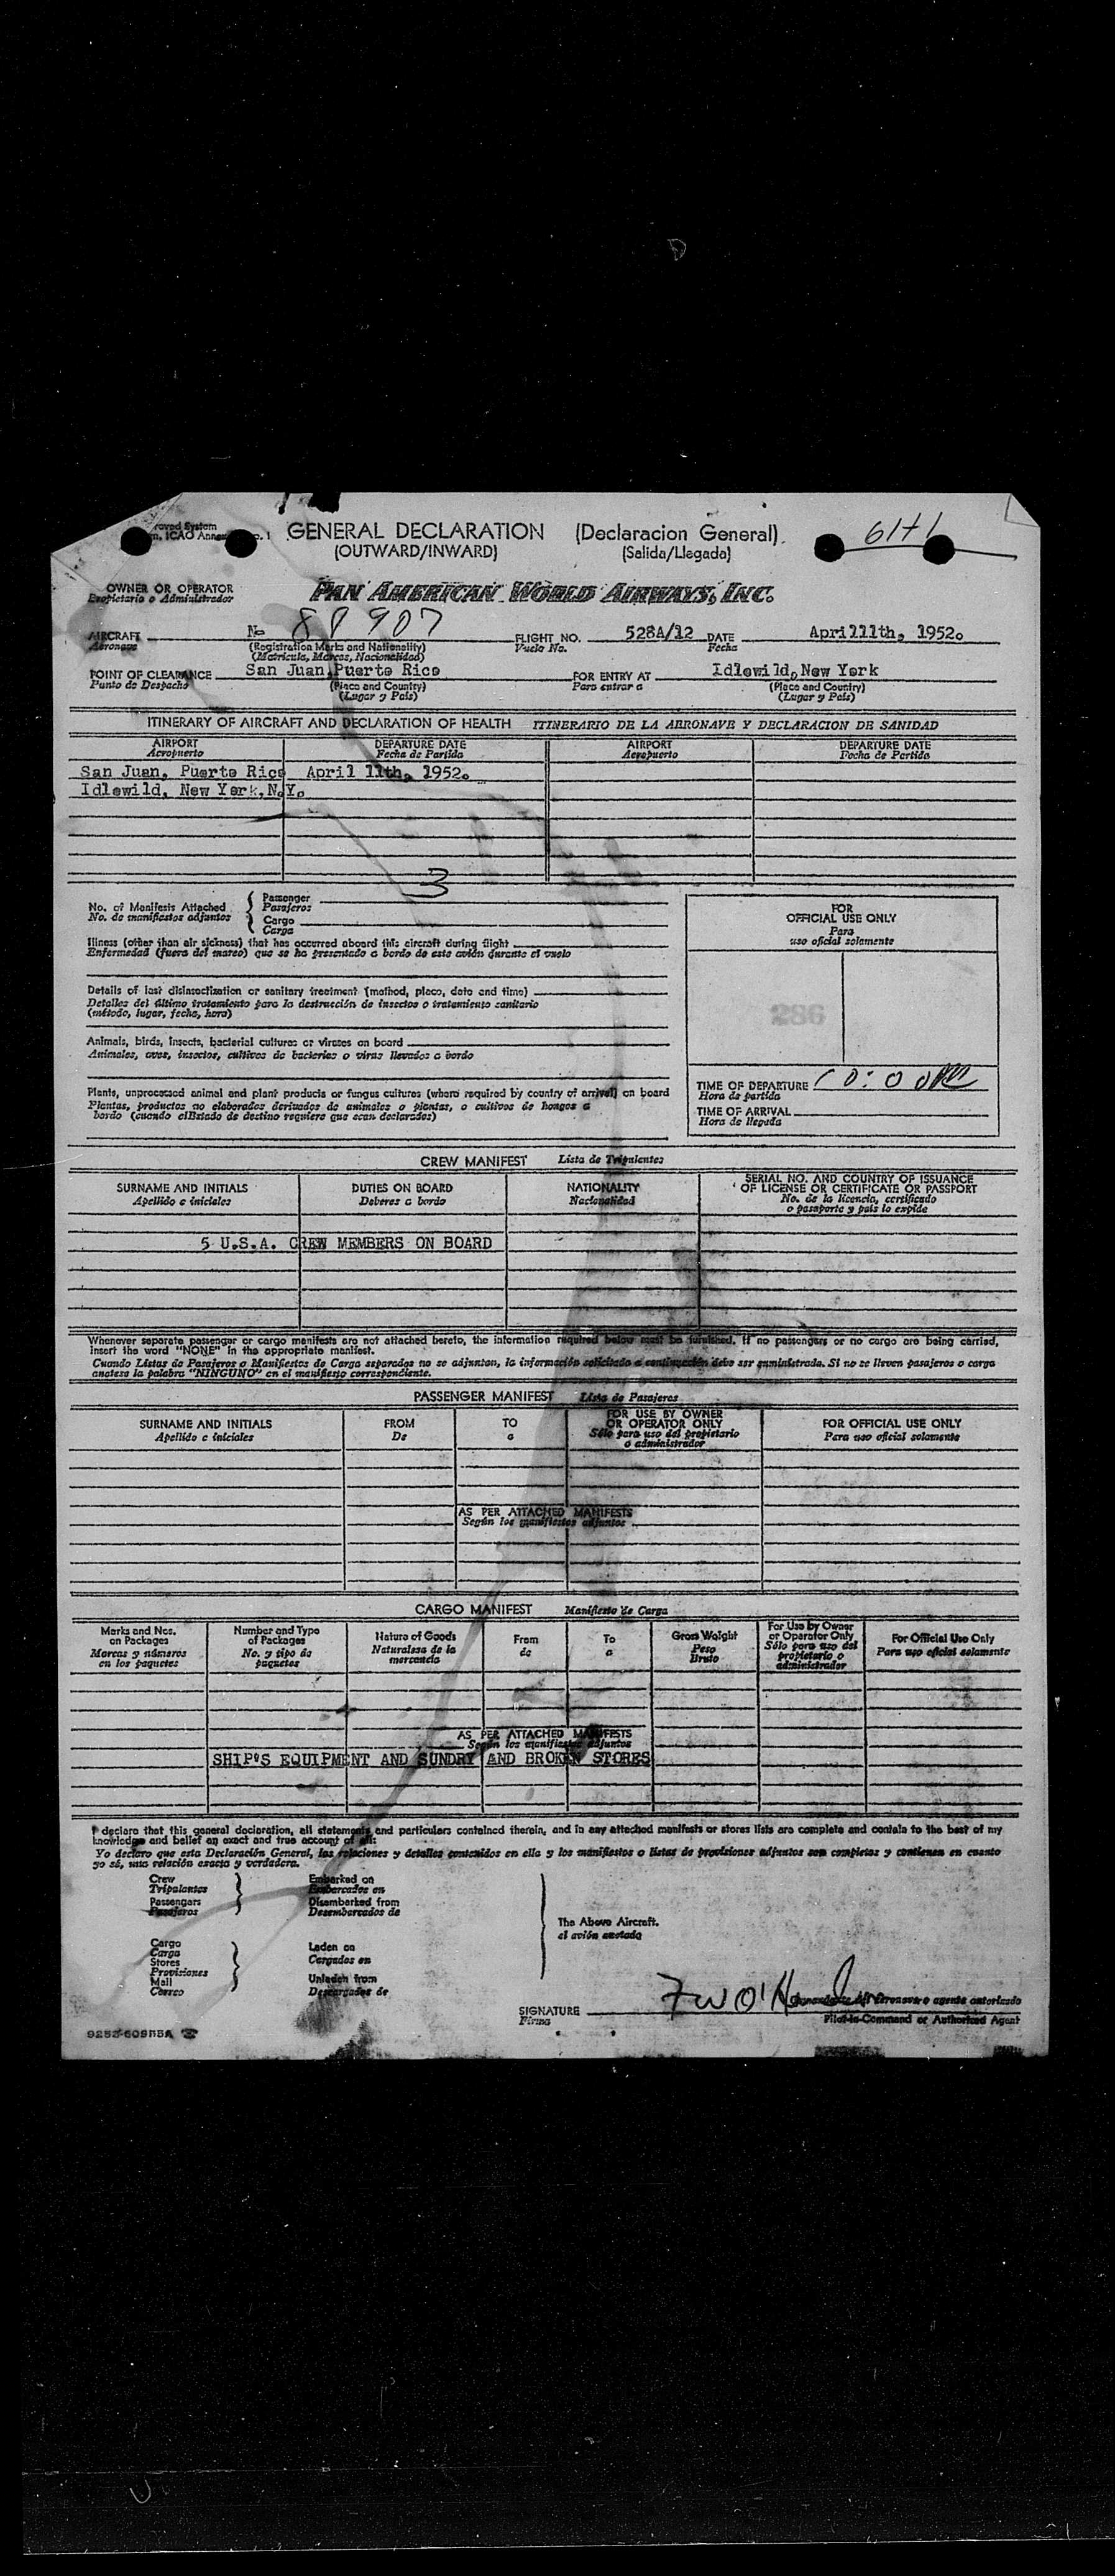 GENERAL DECLARATION (Declaracion General)
(OUTWARD/INWARD) (Salida/Llegada)
61+1
OWNER OR OPERATOR
Propietario o Administrador
PAN AMERICAN WORLD AIRWAYS, INC.
AIRCRAFT N- FLIGHT NO. 528A/12 DATE April11th, 1952.
Aeronave (Registration Marks and Nationality) Vuelo No. Fecha
(Matricula, Marcas, Nacionalidad)
POINT OF CLEARANCE San Juan,Puerto Rico FOR ENTRY AT Idlewild, New York
Punto de Despacho (Place and Country) Para entrar a (Place and Country)
(Lugar y País) (Lugar y País)
ITINERARY OF AIRCRAFT AND DECLARATION OF HEALTH ITINERARIO DE LA AERONAVE Y DECLARACION DE SANIDAD
AIRPORT DEPARTURE DATE AIRPORT DEPARTURE DATE
Aeropuerto Fecha de Partida Aeropuerto Fecha de Partida
San Juan, Puerto Rico April 11th, 1952.
Idlewild, New York,N.Y.
3
No. of Manifests Attached { Passenger
No. de manifiestos adjuntos Pasajeros
Cargo
Carga
Illness (other than air sickness) that has occurred aboard this aircraft during flight
Enfermedad (fuera del mareo) que se ha presentado a bordo de este avión durante el vuelo
Details of last disinsectization or sanitary treatment (method, place, date and time)
Detalles del último tratamiento para la destrucción de insectos o tratamiento sanitario
(método, lugar, fecha, hora)
Animals, birds, insects, bacterial cultures or viruses on board
Animales, aves, insectos, cultivos de bacterias o virus llevados a bordo
Plants, unprocessed animal and plant products or fungus cultures (where required by country of arrival) on board
Plantas, productos no elaborados derivados de animales o plantas, o cultivos de hongos a
bordo (cuando elEstado de destino requiere que sean declarados)
FOR
OFFICIAL USE ONLY
Para
uso oficial solamente
286
TIME OF DEPARTURE 10:00
Hora de partida
TIME OF ARRIVAL
Hora de llegada
CREW MANIFEST Lista de Tripulantes
SURNAME AND INITIALS DUTIES ON BOARD NATIONALITY SERIAL NO. AND COUNTRY OF ISSUANCE
OF LICENSE OR CERTIFICATE OR PASSPORT
Apellido e iniciales Deberes a bordo Nacionalidad No. de la licencia, certificado
o pasaporte y país lo expide
5 U.S.A. CREW MEMBERS ON BOARD
Whenever separate passenger or cargo manifests are not attached hereto, the information required below must be furnished. If no passengers or no cargo are being carried,
insert the word "NONE" in the appropriate manifest.
Cuando Listas de Pasajeros o Manifiestos de Carga separados no se adjuntan, la información solicitada a continuación debe ser suministrada. Si no se lleven pasajeros o carga
anotese la palabra "NINGUNO" en el manifiesto correspondiente.
PASSENGER MANIFEST Lista de Pasajeros
SURNAME AND INITIALS FROM TO FOR USE BY OWNER
OR OPERATOR ONLY FOR OFFICIAL USE ONLY
Apellido e iniciales De a Sólo para uso del propietario
o administrador Para uso oficial solamente
AS PER ATTACHED MANIFESTS
Según los manifiestos adjuntos
CARGO MANIFEST Manifiesto de Carga
Marks and Nos.
on Packages
Marcas y números
en los paquetes
Number and Type
of Packages
No. y tipo de
paquetes
Nature of Goods
Naturalesa de la
mercancía
From
de
To
a
Gross Weight
Peso
Bruto
For Use by Owner
or Operator Only
Sólo para uso del
propietario o
administrador
For Official Use Only
Para uso oficial solamente
AS PER ATTACHED MANIFESTS
Según los manifiestos adjuntos
SHIP'S EQUIPMENT AND SUNDRY AND BROKEN STORES
I declare that this general declaration, all statements and particulars contained therein, and in any attached manifests or stores lists are complete and contain to the best of my
knowledge and belief an exact and true account of all:
Yo declaro que esta Declaración General, las relaciones y detalles contenidos en ella y los manifiestos o listas de provisiones adjuntos son completos y contienen en cuanto
yo sé, una relación exacta y verdadera.
Crew Embarked on
Tripulantes Embarcados en
Passengers Disembarked from
Pasajeros Desembarcados de
The Above Aircraft.
el avión anotado
Cargo Laden on
Carga Cargados en
Stores
Provisiones
Mail Unladen from
Correo Descargados de
SIGNATURE
Firma
Pilot-in-Command or Authorized Agent